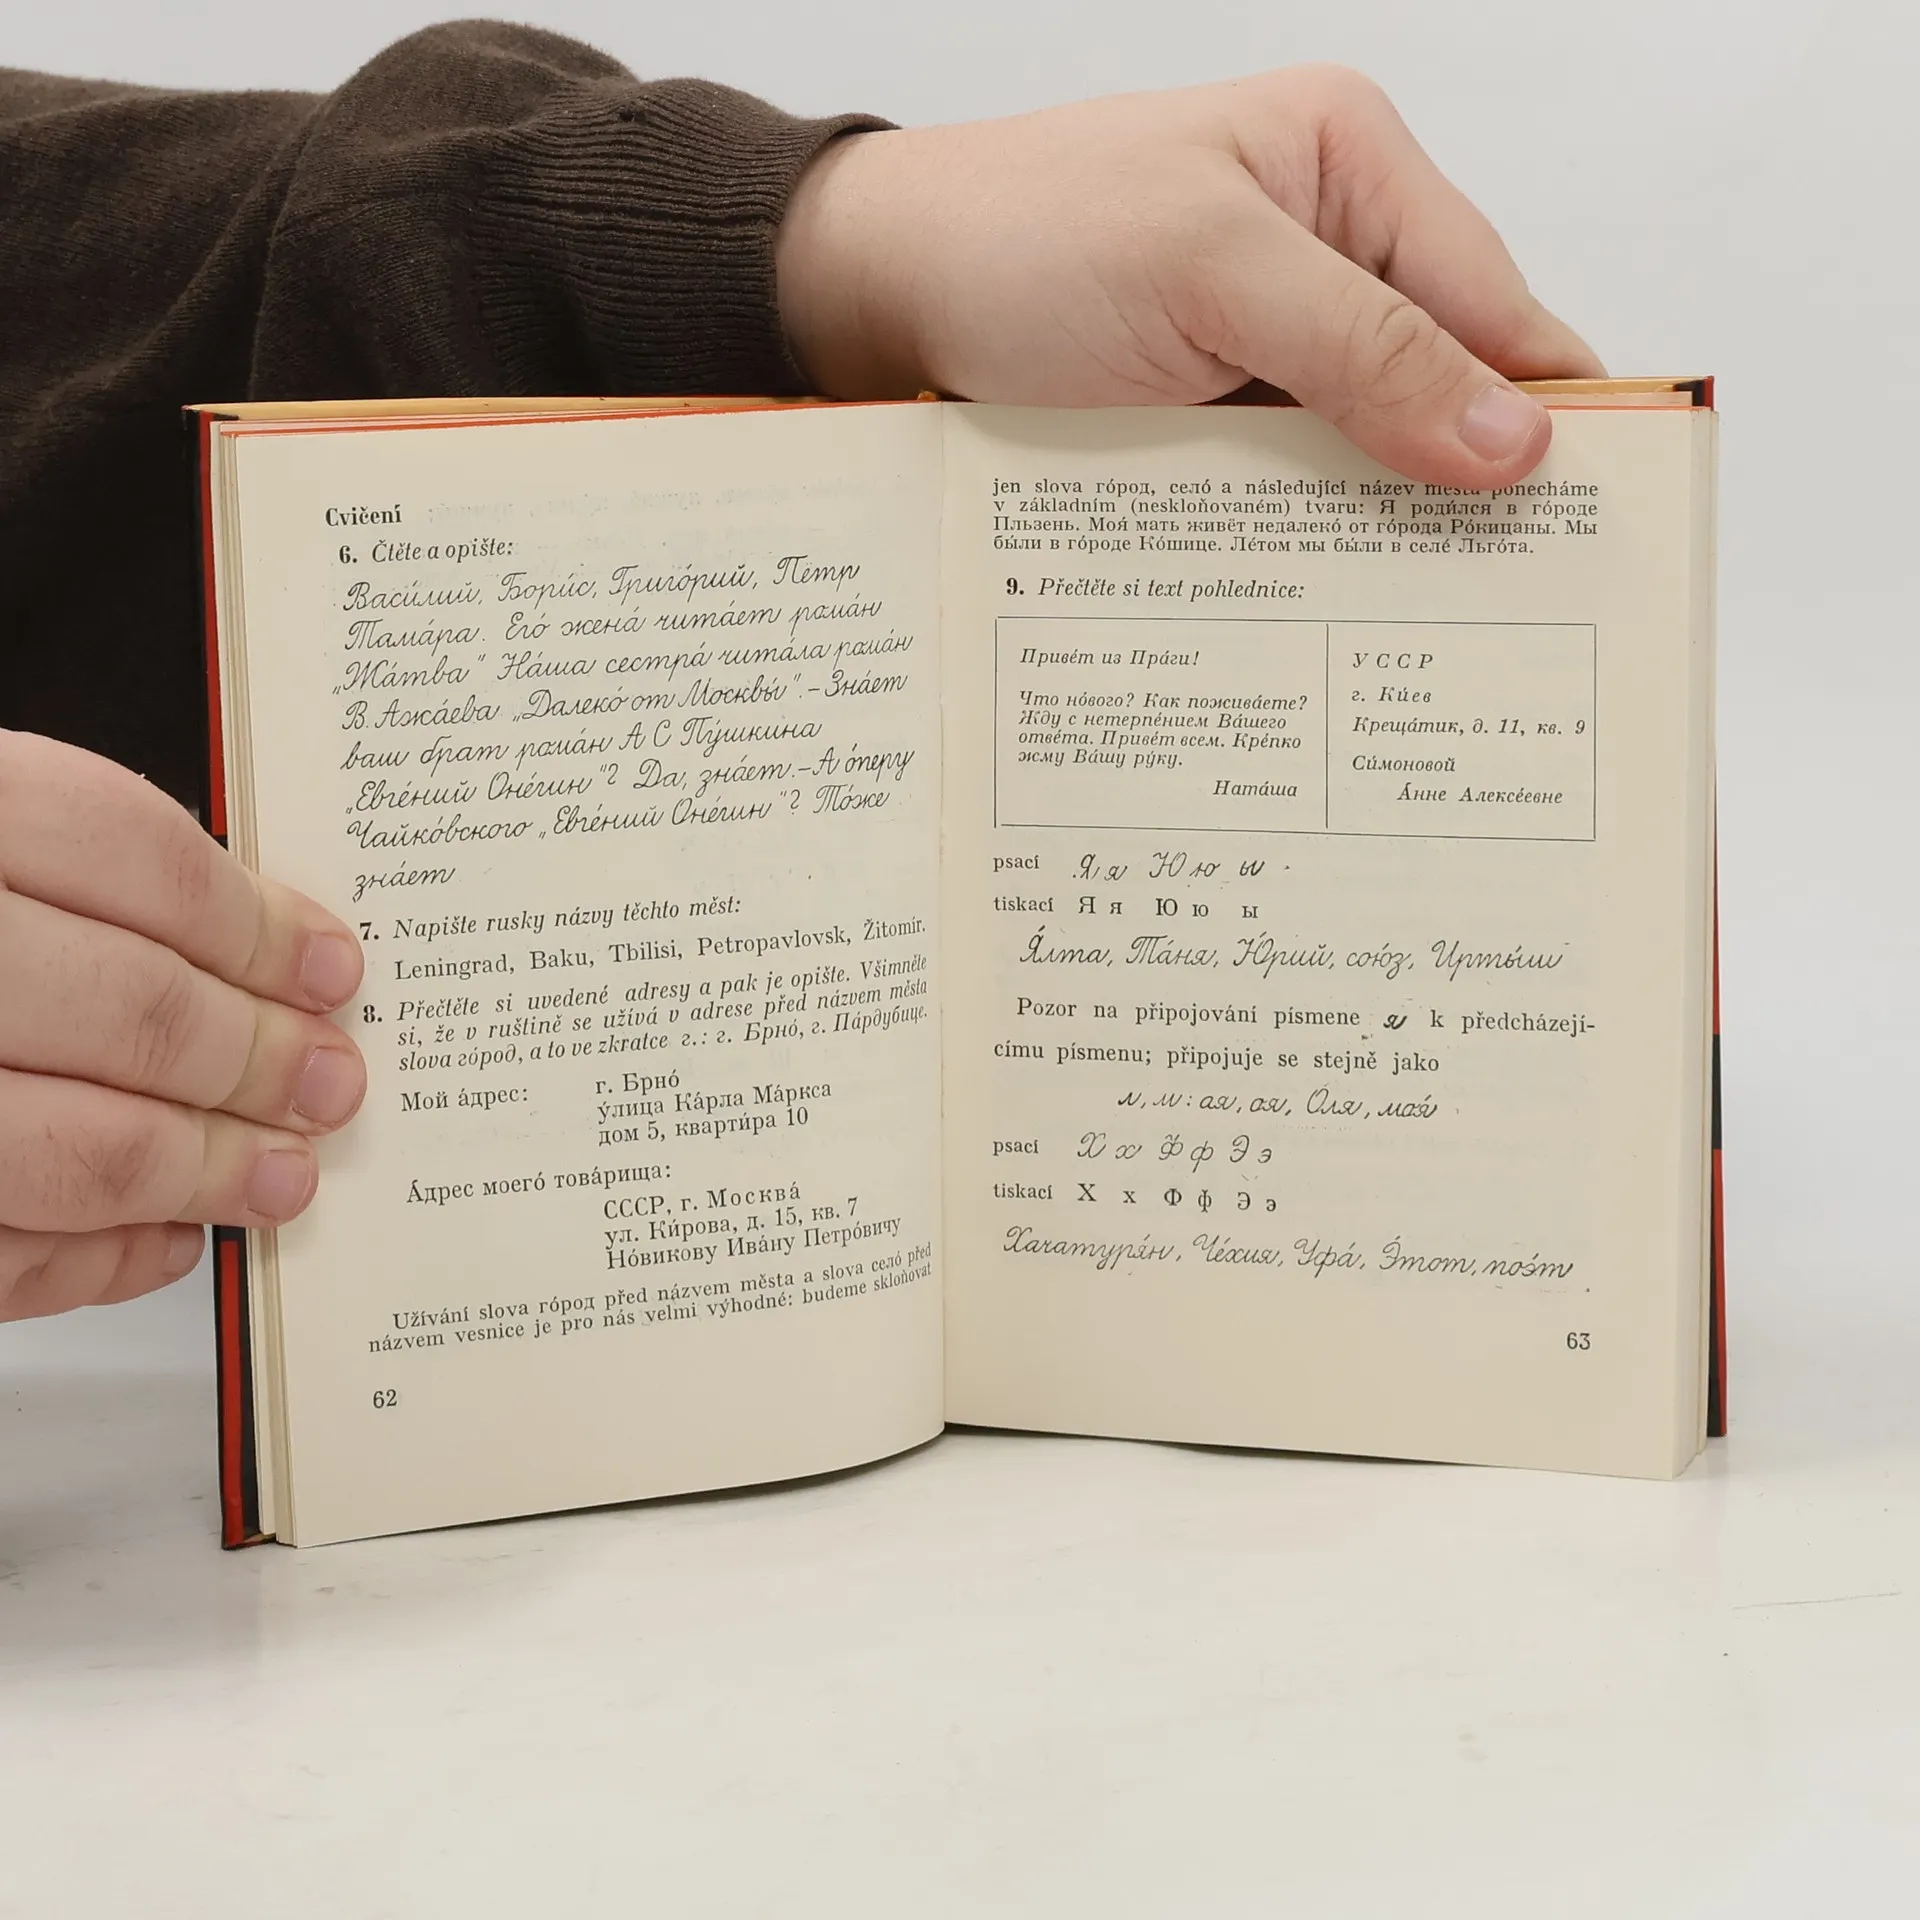 Cvičení
6. Čtěte a opište:
Васи́лий, Бори́с, Григо́рий, Пётр
Тама́ра. Его́ жена́ чита́ет рома́н
„Жа́тва“ На́ша сестра́ чита́ла рома́н
В. Ажа́ева „Далеко́ от Москвы́“. – Зна́ет
ваш брат рома́н А С Пу́шкина
„Евге́ний Оне́гин“? Да, зна́ет. – А о́перу
Чайко́вского „Евге́ний Оне́гин“? То́же
зна́ет
7. Napište rusky názvy těchto měst:
Leningrad, Baku, Tbilisi, Petropavlovsk, Žitomír.
8. Přečtěte si uvedené adresy a pak je opište. Všimněte
si, že v ruštině se užívá v adrese před názvem města
slova го́род, a to ve zkratce г.: г. Брно́, г. Па́рдубице.
Мой а́дрес: г. Брно́
у́лица Ка́рла Ма́ркса
дом 5, кварти́ра 10
А́дрес моего́ това́рища:
СССР, г. Москва́
ул. Ки́рова, д. 15, кв. 7
Но́викову Ива́ну Петро́вичу
Užívání slova го́род před názvem města a slova село́ před
názvem vesnice je pro nás velmi výhodné: budeme skloňovat
62
jen slova го́род, село́ a následující název města ponecháme
v základním (neskloňovaném) tvaru: Я роди́лся в го́роде
Пльзень. Моя́ мать живёт недалеко́ от го́рода Ро́кицаны. Мы
бы́ли в го́роде Ко́шице. Ле́том мы бы́ли в селе́ Льго́та.
9. Přečtěte si text pohlednice:
Приве́т из Пра́ги!
Что но́вого? Как пожива́ете?
Жду с нетерпе́нием Ва́шего
отве́та. Приве́т всем. Кре́пко
жму Ва́шу ру́ку.
Ната́ша
УССР
г. Ки́ев
Креща́тик, д. 11, кв. 9
Си́моновой
А́нне Алексе́евне
psací Я я Ю ю ы
tiskací Я я Ю ю ы
Я́лта, Та́ня, Ю́рий, сою́з, Ирты́ш
Pozor na připojování písmene я k předcházejí-
címu písmenu; připojuje se stejně jako
л, м: ая, оя, О́ля, моя́
psací Х х Ф ф Э э
tiskací Х х Ф ф Э э
Хачатуря́н, Че́хия, Уфа́, Э́тот, поэ́т
63